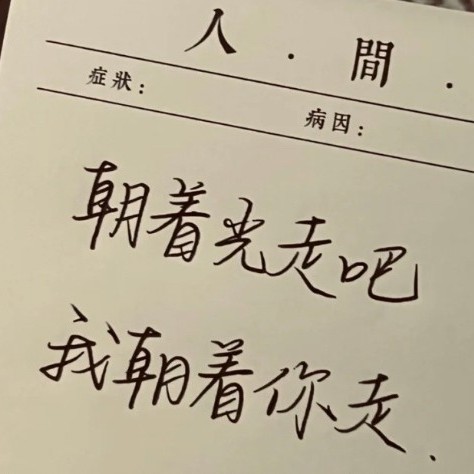 人．間．
症狀： 病因：
朝着光走吧
我朝着你走.